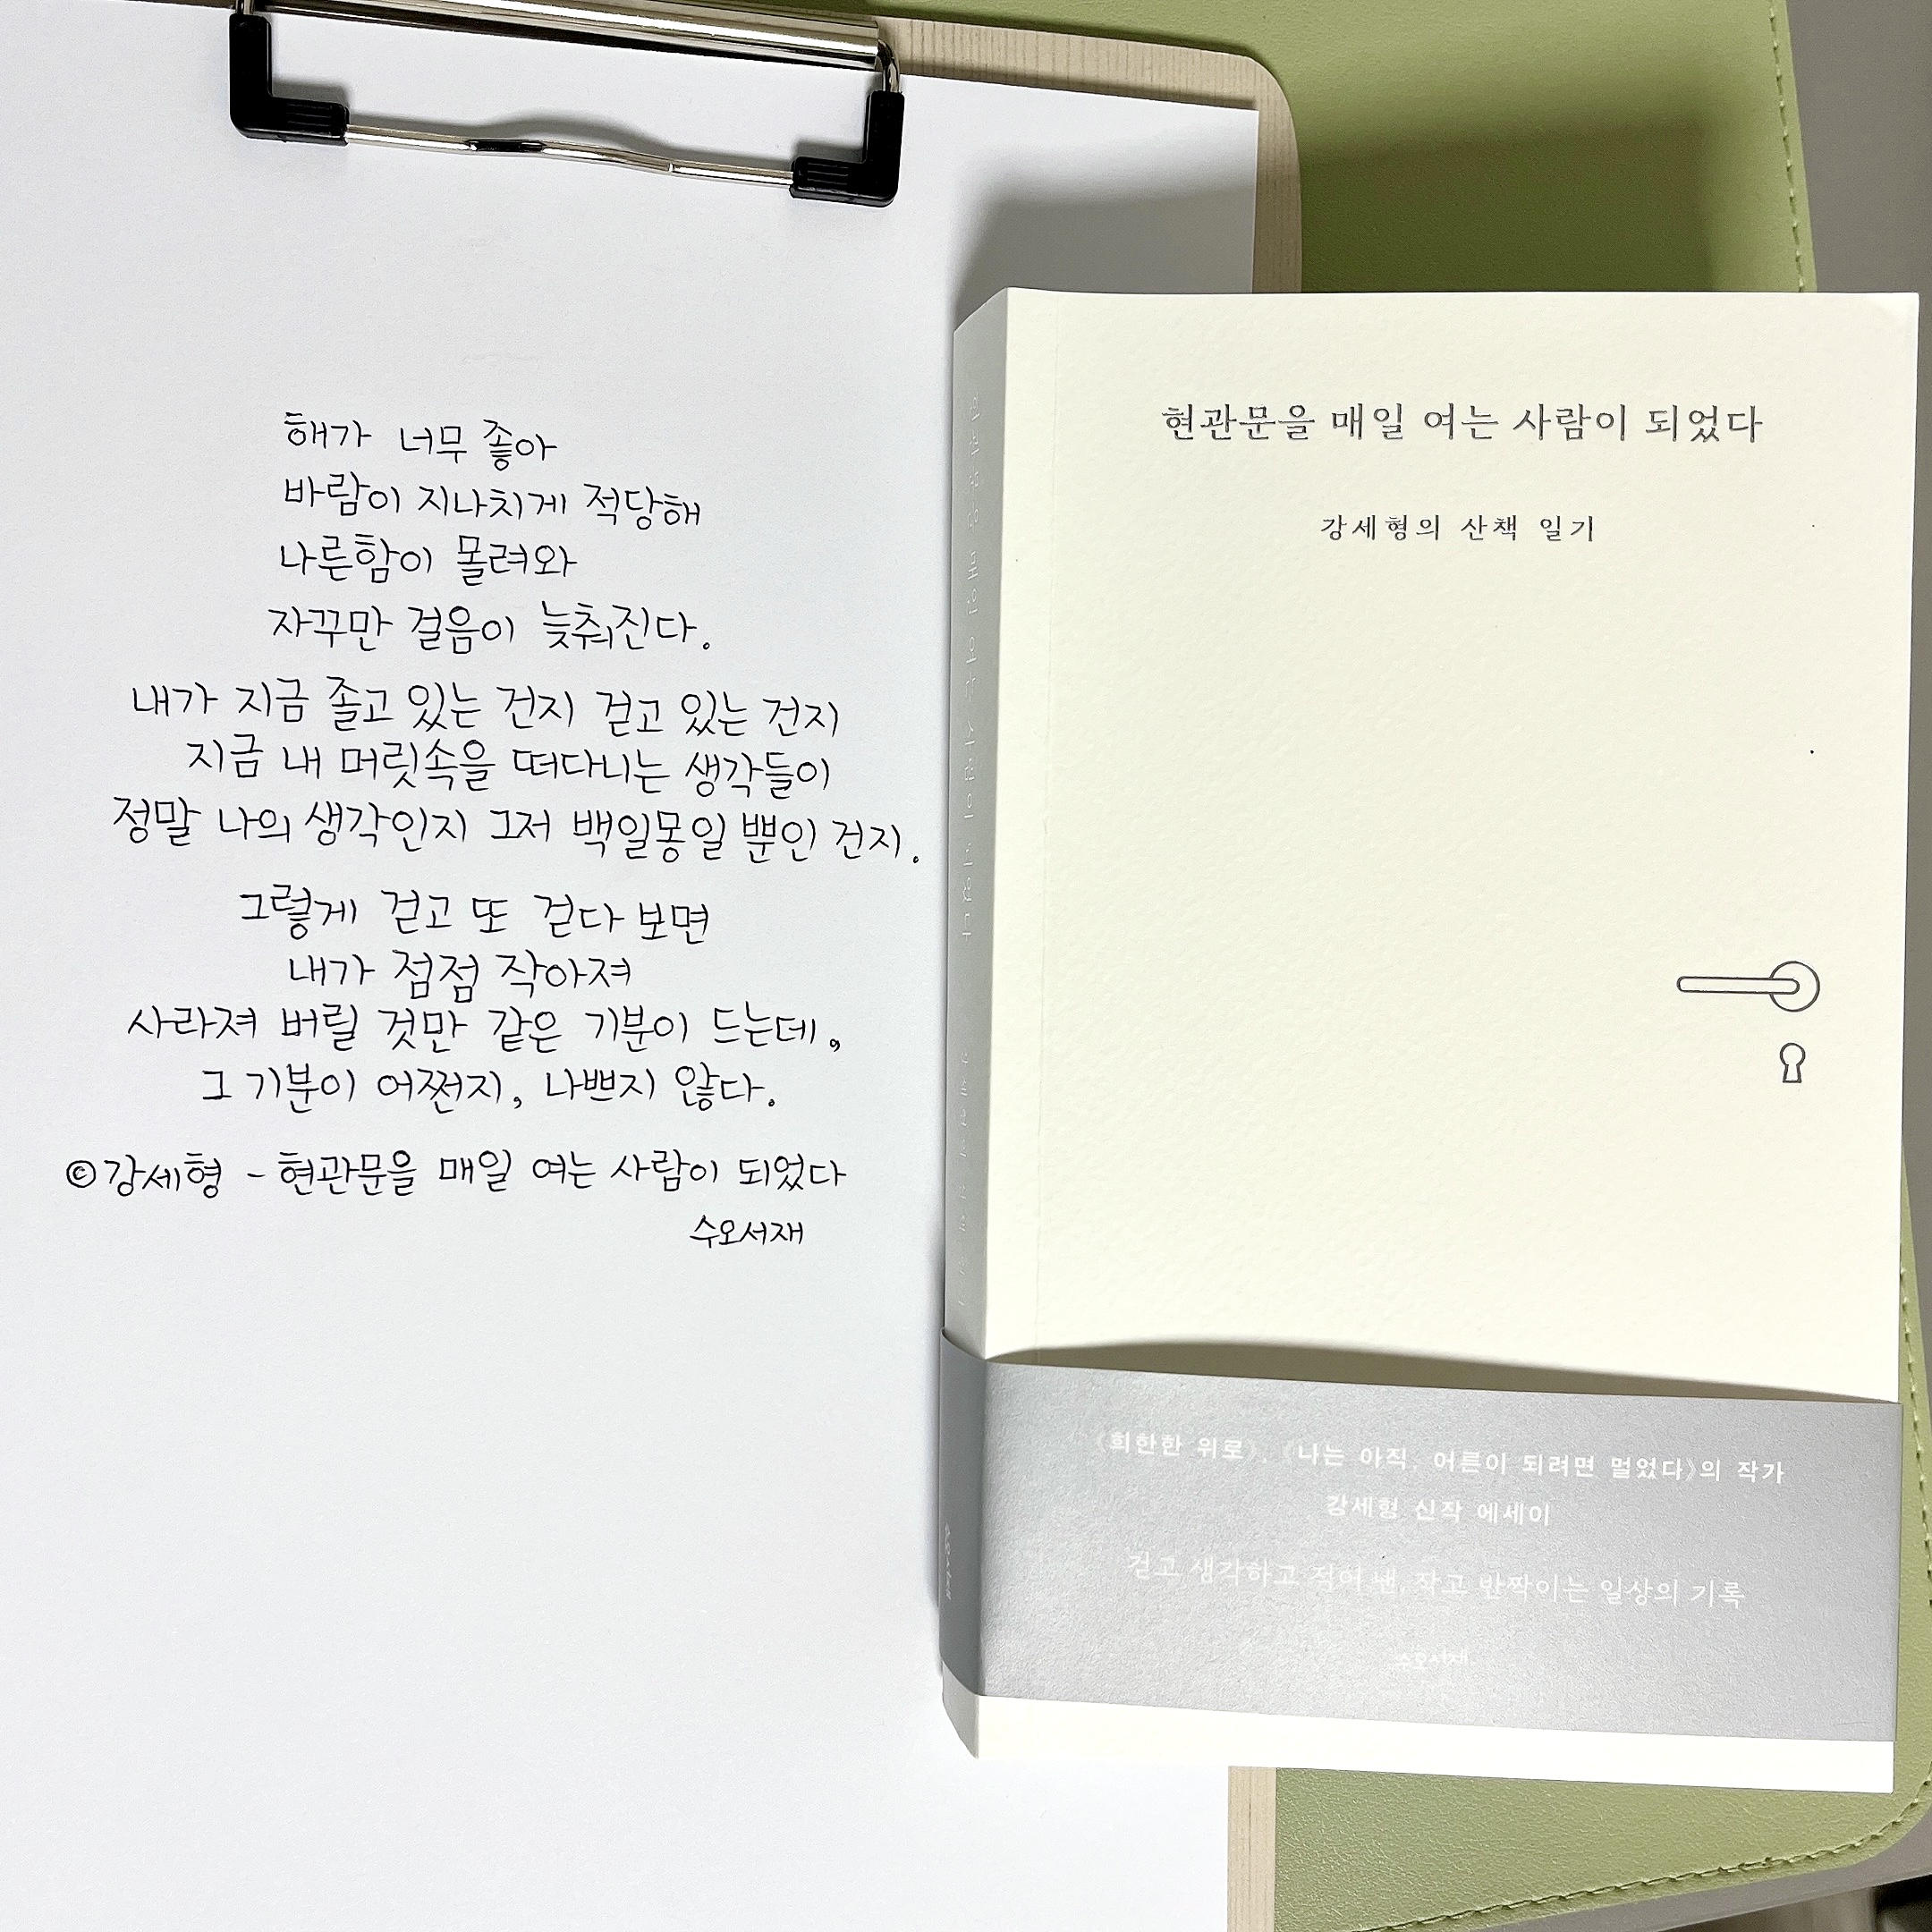 해가 너무 좋아
바람이 지나치게 적당해
나른함이 몰려와
자꾸만 걸음이 늦춰진다.
내가 지금 졸고 있는 건지 걷고 있는 건지
지금 내 머릿속을 떠다니는 생각들이
정말 나의 생각인지 그저 백일몽일 뿐인 건지.
그렇게 걷고 또 걷다 보면
내가 점점 작아져
사라져 버릴 것만 같은 기분이 드는데,
그 기분이 어쩐지, 나쁘지 않다.
©강세형 - 현관문을 매일 여는 사람이 되었다
수오서재
현관문을 매일 여는 사람이 되었다
강세형의 산책 일기
현관문을 매일 여는 사람이 되었다
강세형의 산책 일기
수오서재
《희한한 위로》, 《나는 아직, 어른이 되려면 멀었다》의 작가
강세형 신작 에세이
걷고 생각하고 적어 낸, 작고 반짝이는 일상의 기록
수오서재